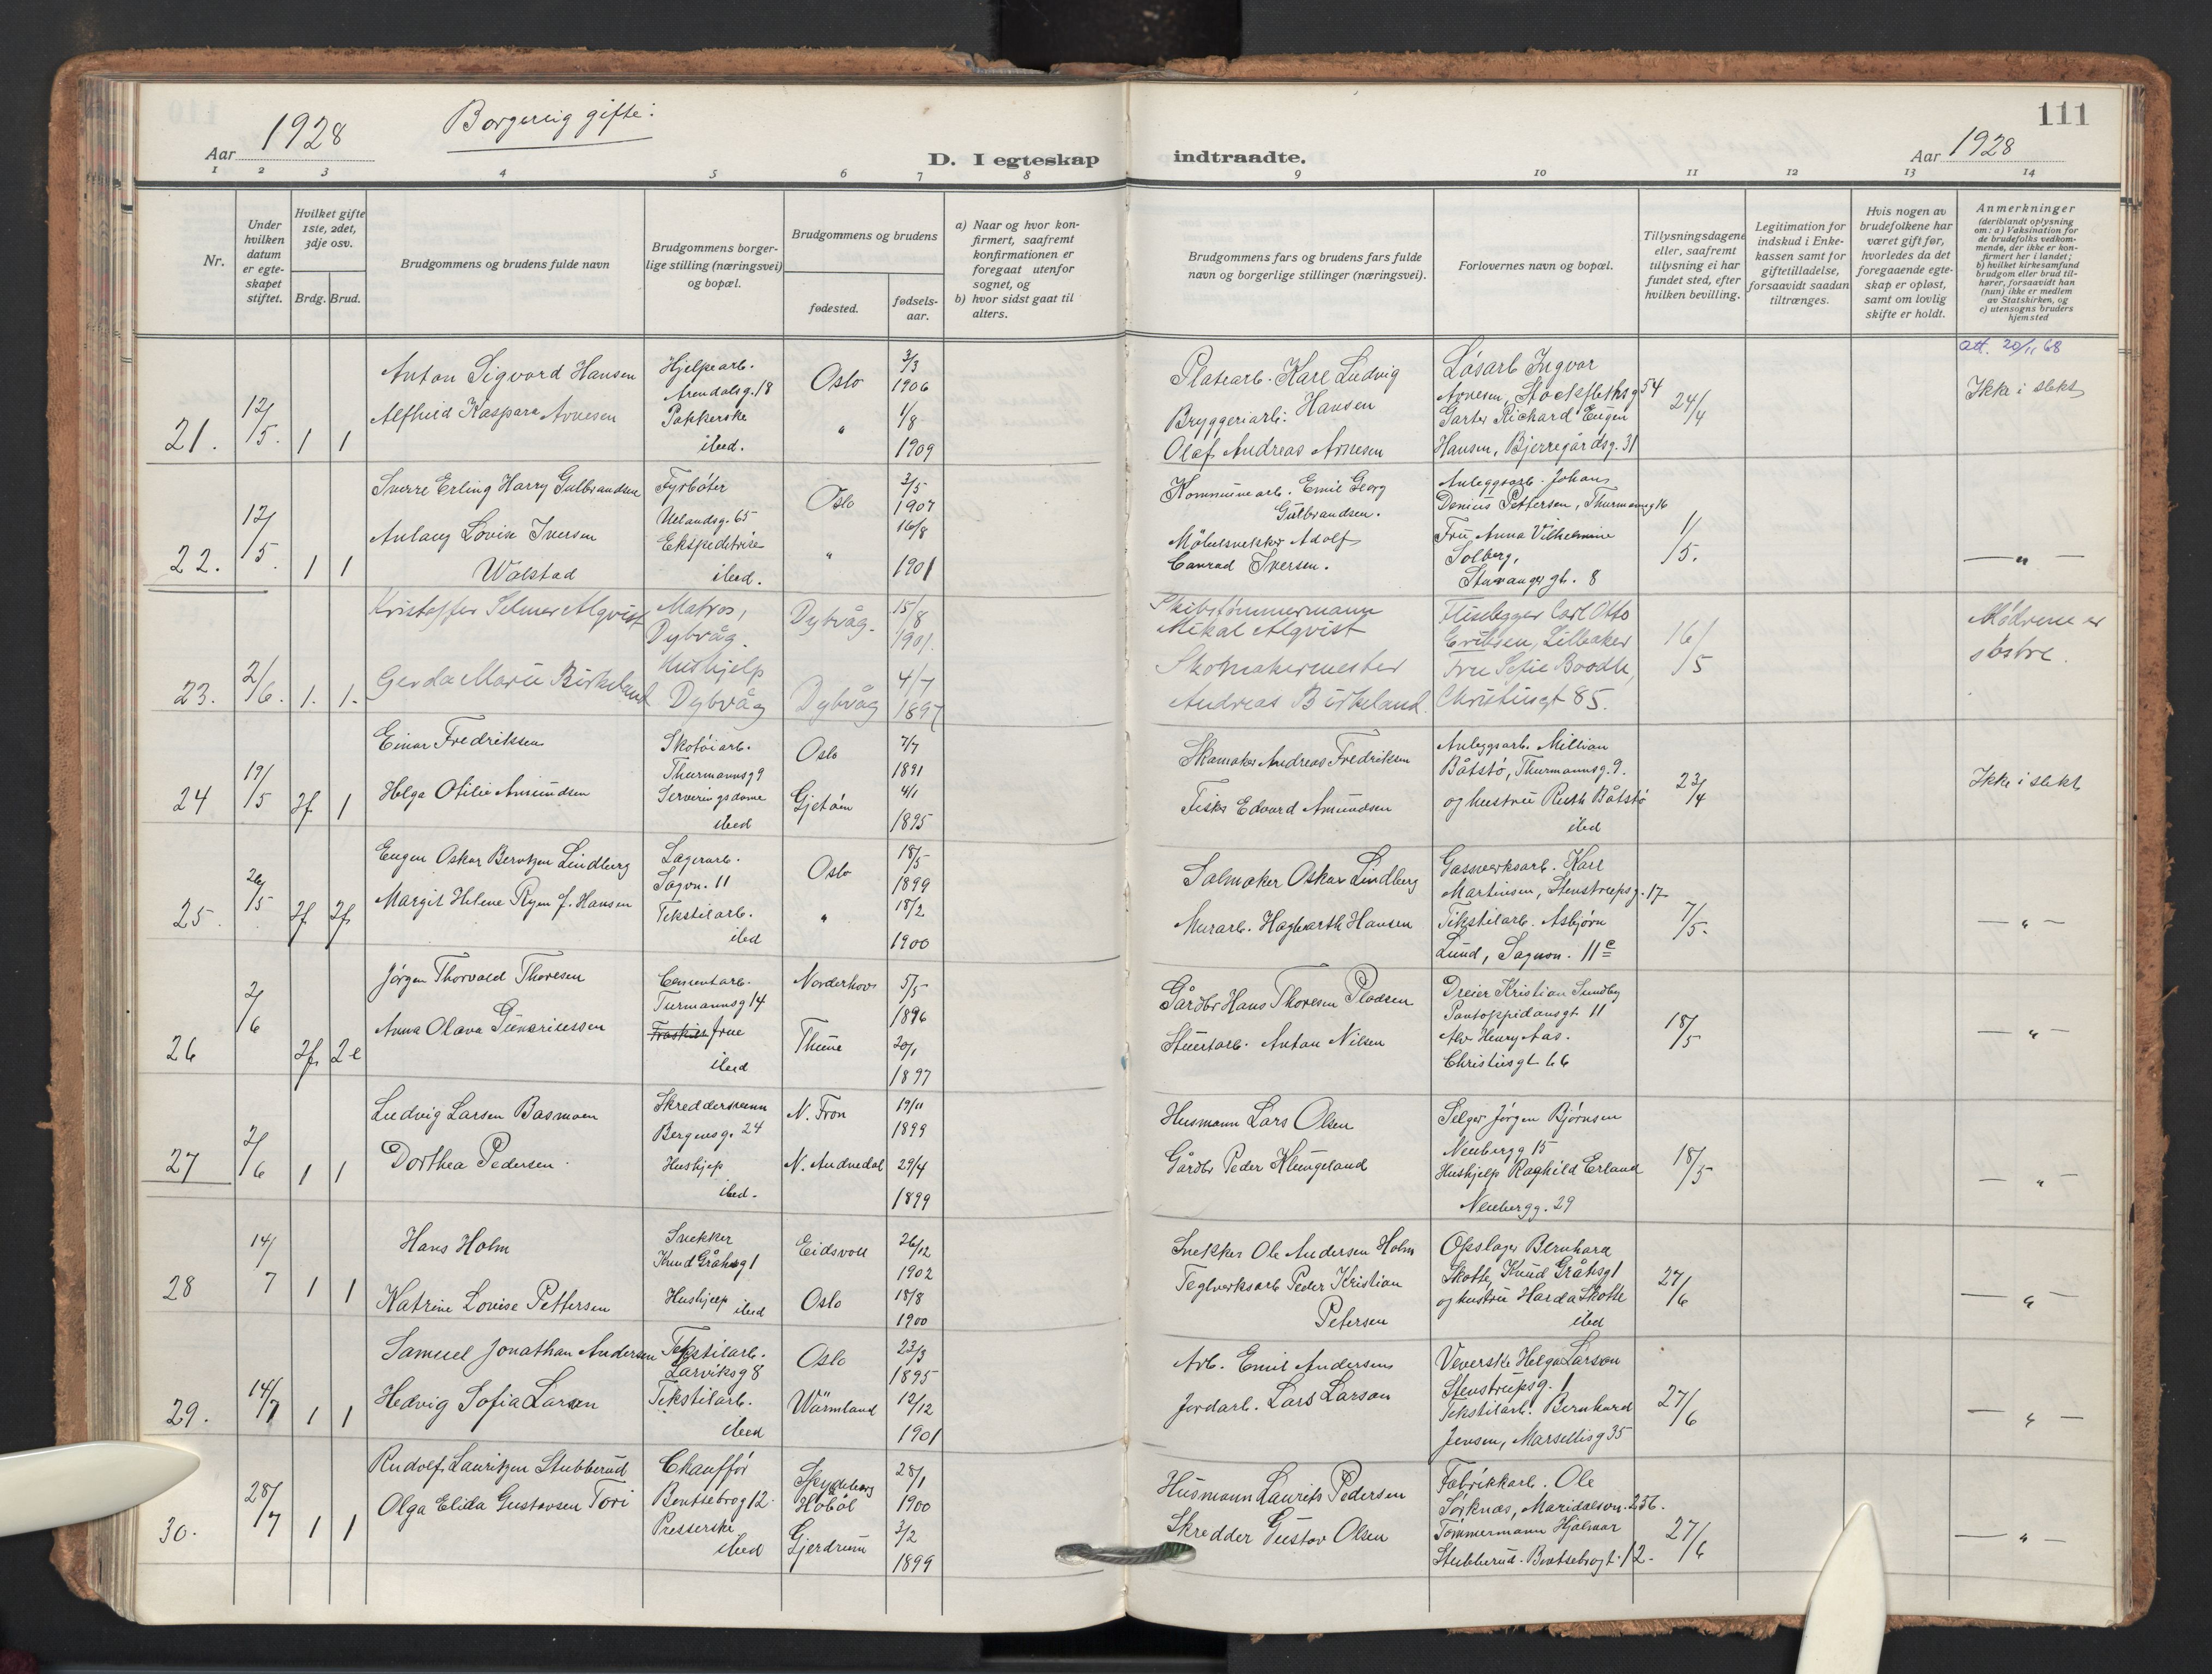 111
Aar 1928
Borgerlig gifte:
D. I egteskap indtraadte.
Aar 1928
1 2 3 4 5 6 7 8 9 10 11 12 13 14
Nr.
Under
hvilken
datum
er egte-
skapet
stiftet.
Hvilket gifte
1ste, 2det,
3dje osv.
Brdg. Brud.
Brudgommens og brudens fulde navn
Brudgommens borger-
lige stilling (næringsvei)
og bopæl.
Brudgommens og brudens
fødested.
fødsels-
aar.
a) Naar og hvor kon-
firmert, saafremt
konfirmationen er
foregaat utenfor
sognet, og
b) hvor sidst gaat til
alters.
Brudgommens fars og brudens fars fulde
navn og borgerlige stillinger (næringsvei).
Forlovernes navn og bopæl.
Tillysningsdagene
eller, saafremt
tillysning ei har
fundet sted, efter
hvilken bevilling.
Legitimation for
indskud i Enke-
kassen samt for
giftetilladelse,
forsaavidt saadan
tiltrænges.
Hvis nogen av
brudefolkene har
været gift før,
hvorledes da det
foregaaende egte-
skap er opløst,
samt om lovlig
skifte er holdt.
Anmerkninger
(deriblandt oplysning
om: a) Vaksination for
de brudefolks vedkom-
mende, der ikke er kon-
firmert her i landet;
b) hvilket kirkesamfund
brudgom eller brud til-
hører, forsaavidt han
(hun) ikke er medlem
av Statskirken, og
c) utensogns bruders
hjemsted
21.
12/5.
1 1
Anton Sigvard Hansen
Alfhild Kaspara Arnesen
Hjelpearb.
Arendalsg. 18
Pakkerske
ibed.
Oslo
"
3/3
1906
1/8
1909
Platearb. Karl Ludvig
Hansen
Bryggeriarb:
Olaf Andreas Arnesen
Løsarb Ingvar
Arnesen, Stockflethsg 54
Garter Richard Eugen
Hansen, Bjerregårdsg. 31
24/4
att. 20/11 68
Ikke i slekt
22.
12/5.
1 1
Sverre Erling Harry Gulbrandsen
Aulaug Lovise Iversen
Wålstad
Fyrbøter
Uelandsg. 65
Ekspeditrise
ibed.
Oslo
"
3/5
1907
16/8
1901
Kommunearb. Emil Georg
Gulbrandsen.
Møbelsnekker Adolf
Conrad Iversen.
Anleggsarb. Johans
Denius Pettersen, Thurmannsg 16
Fru Anna Vilhelmine
Solberg,
Stavanger gt. 8
1/5.
— " —
23.
2/6.
1. 1.
Kristoffer Selmer Alqvist
Gerda Marie Birkeland
Matros,
Dybvåg.
Hushjelp
Dybvåg
Dybvåg.
Dybvåg
15/8
1901.
4/7
1897
Skibstømmermann
Mikal Alqvist
Skomakermester
Andreas Birkeland.
Fliselegger Carl Otto
Eriksen, Lilleaker
Fru Sofie Boodle,
Christiesgt 85.
16/5
Mødrene er
søstre.
24
19/5
2f 1
Einar Fredriksen
Helga Otilie Amundsen
Skotøiarb.
Thurmannsg 9
Serveringsdame
ibed
Oslo
Gjetøen
7/7
1891
4/1
1895
Skomaker Andreas Fredriksen
Fisker Edvard Amundsen
Anleggsarb. Millian
Båtstø, Thurmannsg. 9.
og hustru Ruth Båtstø
ibed
23/4
Ikke i slekt
25.
26/5
2f 2f
Eugen Oskar Berntzen Lindberg
Margit Helene Ryen f. Hansen
Lagerarb.
Sagvn. 11
Tekstilarb.
ibed
Oslo
"
18/5
1899
18/2
1900
Salmaker Oskar Lindberg
Murarb. Hagbarth Hansen
Gassverksarb. Karl
Martinsen, Stenstrupsg. 17
Tekstilarb. Asbjørn
Lund, Sagvn. 11 c
7/5.
— " —
26
2/6
2f 2e
Jørgen Thorvald Thoresen
Anna Olava Gunariussen
Cementarb.
Turmannsg 14
frue
ibed
Norderhov
Thune
5/5
1896
20/1
1897
Gårdbr Hans Thoresen Plodsen
Stuertarb. Anton Nilsen
Dreier Kristian Sundby
Pontoppidansgt 11
Arb Henry Aas.
Christiesgt 66
18/5
— " —
27
2/6
1 1
Ludvig Larsen Basmoen
Dorthea Pedersen.
Skreddersvenn
Bergensg. 24
Hushjelp
ibed.
N. Fron
N. Audnedal
19/11
1899
29/4
1899
Husmann Lars Olsen
Gårdbr Peder Klungeland
Selger Jørgen Bjørnsen
Neubergg 15
Hushjelp Raghild Erland
Neubergg. 29
18/5
— " —
28
14/7
1 1
Hans Holm
Katrine Lovise Pettersen
Snekker
Knud Gråhsg 1
Hushjelp ibed
Eidsvoll
Oslo
26/12
1902
18/8
1900
Snekker Ole Andersen Holm
Teglverksarb Peder Kristian
Petersen
Opslager Bernhard
Skotte, Knud Gråhsg 1
og hustru Harda Skotte
ibed
27/6
— " —
29.
14/7
1 1
Samuel Jonathan Andersen
Hedvig Sofia Larson
Tekstilarb.
Larviksg 8
Tekstilarb.
ibed
Oslo
Wärmland
23/3
1895
12/12
1901
Arb. Emil Andersen
Jordarb. Lars Larson
Veverske Helga Larson
Stenstrupsg. 1
Tekstilarb. Bernhard
Jensen, Marsellisg 35
27/6
— " —
30.
28/7
1 1
Rudolf Lauritzen Stubberud
Olga Elida Gustavsen Tori
Chauffør
Bentsebrog 12.
Presserske
ibed
Spydeberg
Hobøl
Gjerdrum
28/1
1900
3/2
1899
Husmann Laurits Pedersen
Skredder Gustav Olsen
Fabrikkarb. Ole
Sørknæs, Maridalsvn. 236.
Tømmermann Hjalmar
Stubberud. Bentsebrogt. 12.
27/6
— " —